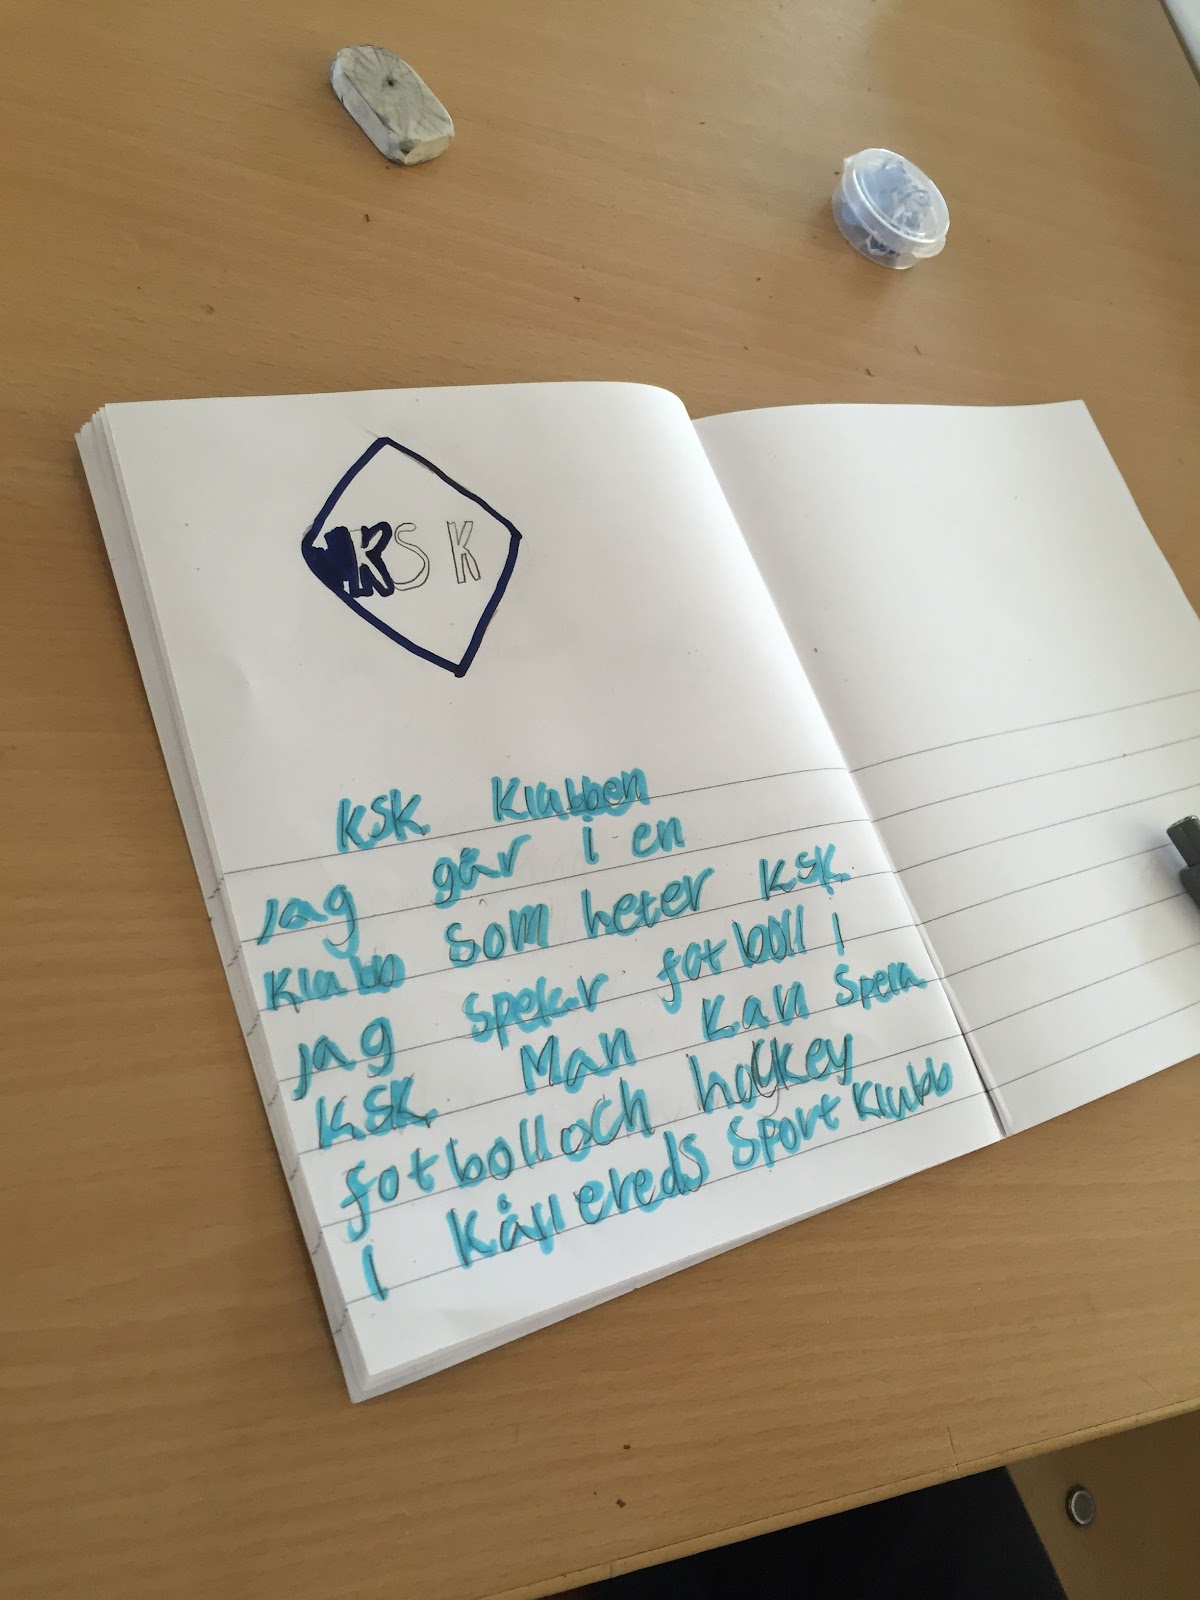 KSK
KSK Klubben
jag går i en
Klubb som heter KSK.
jag spelar fotboll i
KSK. Man kan spela
fotboll och hockey
i Kållereds Sport Klubb